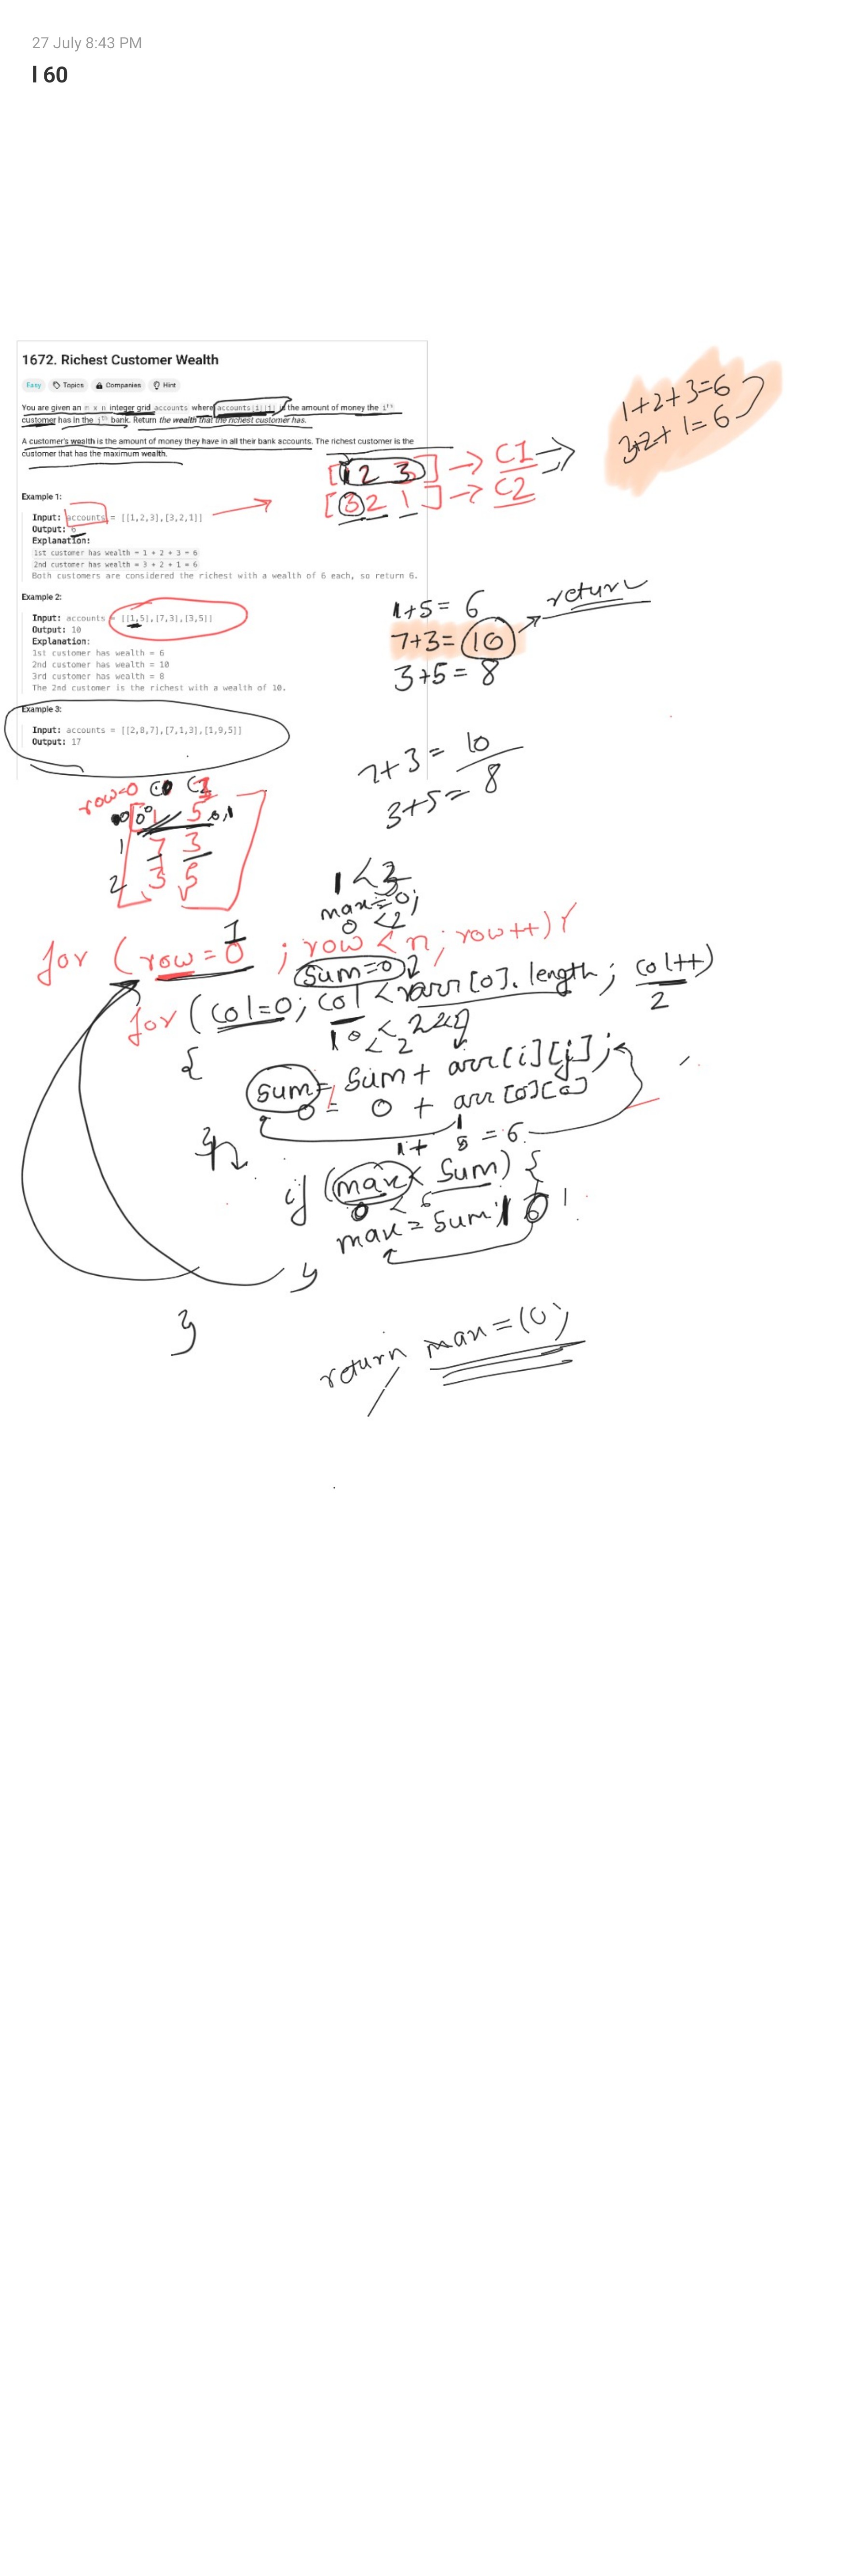 27 July 8:43 PM
l 60
1672. Richest Customer Wealth
Easy Topics Companies Hint
You are given an m x n integer grid accounts where accounts[i][j] is the amount of money the iᵗʰ
customer has in the jᵗʰ bank. Return the wealth that the richest customer has.
A customer's wealth is the amount of money they have in all their bank accounts. The richest customer is the
customer that has the maximum wealth.
1+2+3=6
3+2+1=6
[1 2 3] → C1 →
[3 2 1] → C2
Example 1:
Input: accounts = [[1,2,3],[3,2,1]]
Output: 6
Explanation:
1st customer has wealth = 1 + 2 + 3 = 6
2nd customer has wealth = 3 + 2 + 1 = 6
Both customers are considered the richest with a wealth of 6 each, so return 6.
Example 2:
Input: accounts = [[1,5],[7,3],[3,5]]
Output: 10
Explanation:
1st customer has wealth = 6
2nd customer has wealth = 10
3rd customer has wealth = 8
The 2nd customer is the richest with a wealth of 10.
1+5=6
7+3=10 → return
3+5=8
Example 3:
Input: accounts = [[2,8,7],[7,1,3],[1,9,5]]
Output: 17
7+3=10
3+5=8
row=0 C0 C1
5 0,1
1 7 3
2 3 5
1<3
max=0;
0<2
for (row=0 ; row<n; row++){
sum=0;
for (col=0; col<arr[0].length; col++)
2
{
sum = sum + arr[i][j];
0 = 0 + arr[0][0]
1+5=6
}
if (max < sum) {
0 < 6
max = sum; 6
}
}
return max=10;